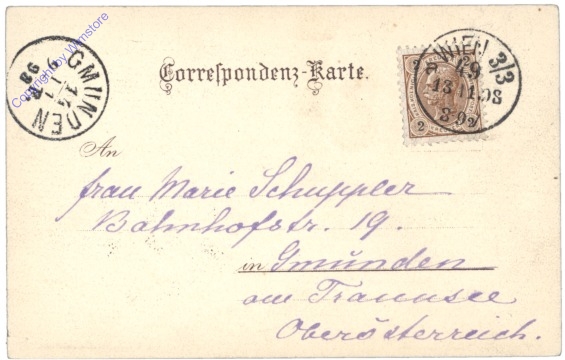 Correspondenz-Karte.
WIEN 3/3
49
13.11.98
8-9V
GMUNDEN
14
11
98
2
2
Copyright by Wimstore
An
frau Marie Schuppler
Bahnhofstr. 19.
in Gmunden
am Traunsee
Oberösterreich.